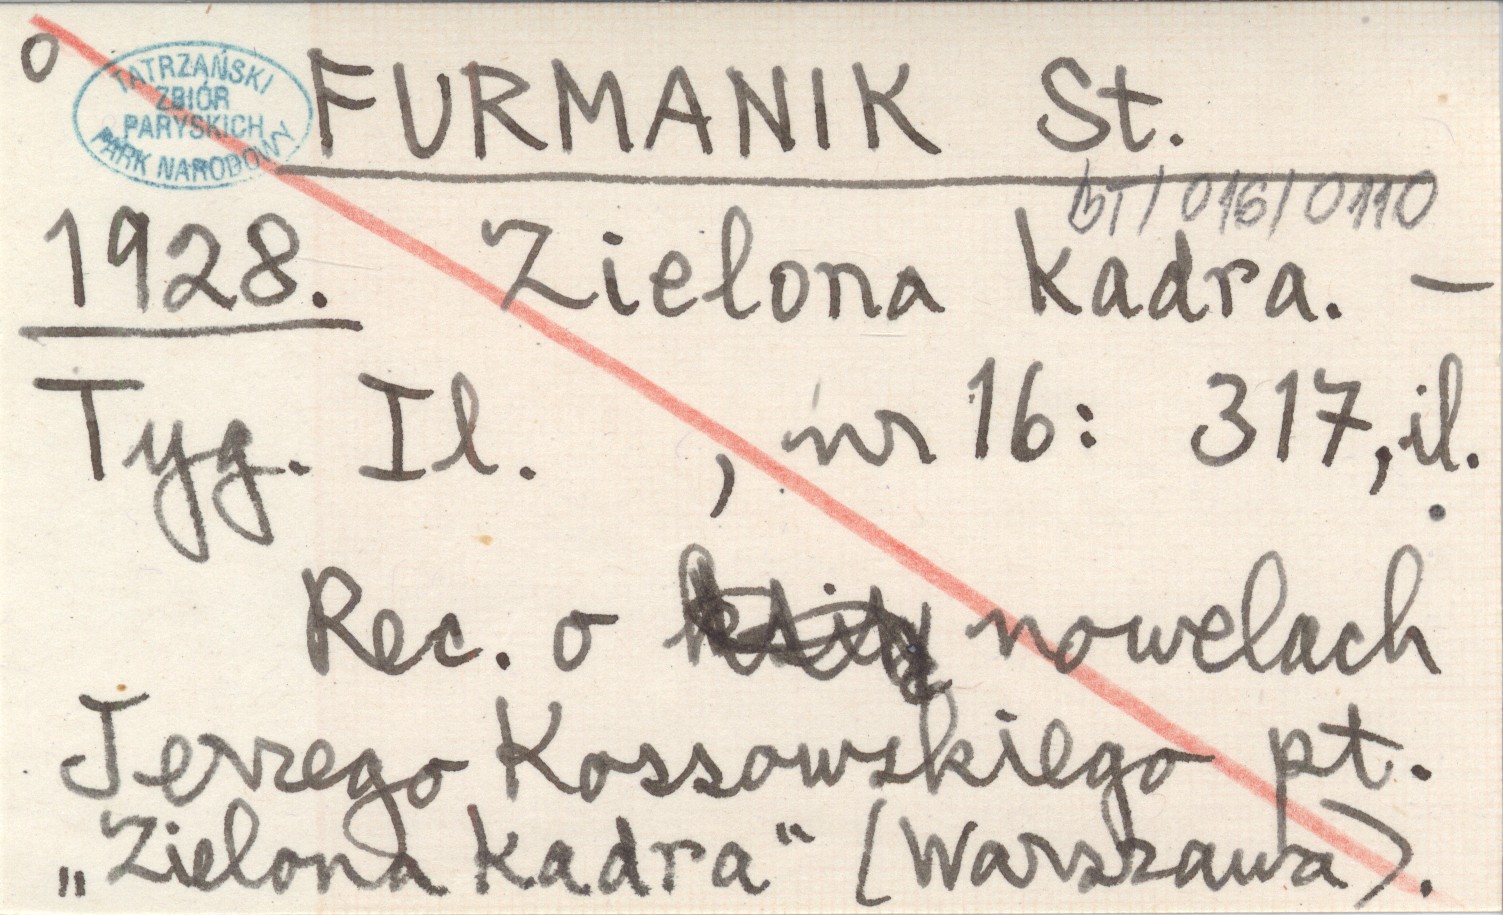 o
TATRZAŃSKI
ZBIÓR
PARYSKICH
PARK NARODOWY
FURMANIK St.
bT/016/0110
1928. Zielona kadra. –
Tyg. Il. , nr 16: 317, il.
Rec. o nowelach
Jerzego Kossowskiego pt.
„Zielona kadra" (Warszawa).